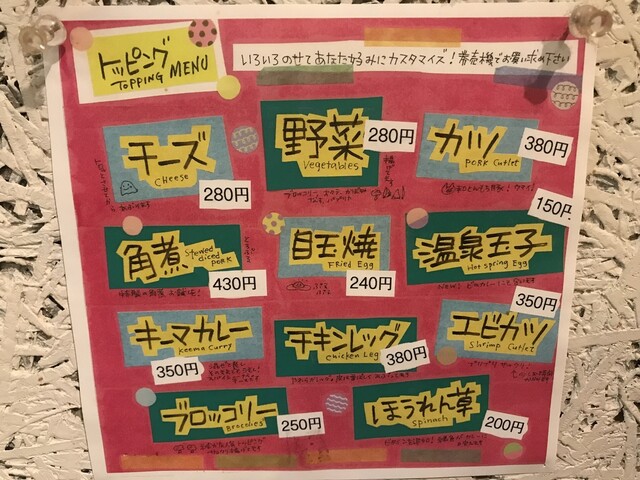 トッピング
TOPPING MENU
いろいろのせてあなた好みにカスタマイズ！券売機でお買い求め下さい
チーズ
Cheese
280円
野菜
Vegetables
280円
カツ
PORK Cutlet
380円
角煮
Stewed diced PORK
430円
目玉焼
FRied Egg
240円
温泉玉子
Hot spring Egg
150円
キーマカレー
Keema Curry
350円
チキンレッグ
chicken Leg
380円
エビカツ
Shrimp Cutlet
350円
ブロッコリー
Broccolies
250円
ほうれん草
Spinach
200円